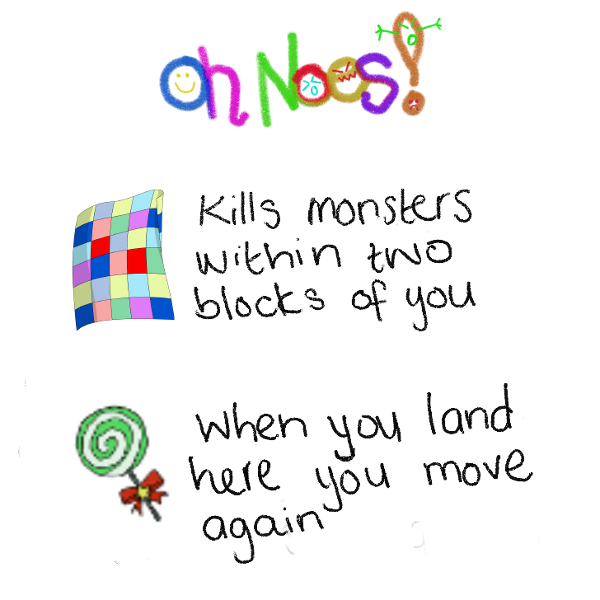 oh Noes!
Kills monsters
within two
blocks of you
when you land
here you move
again